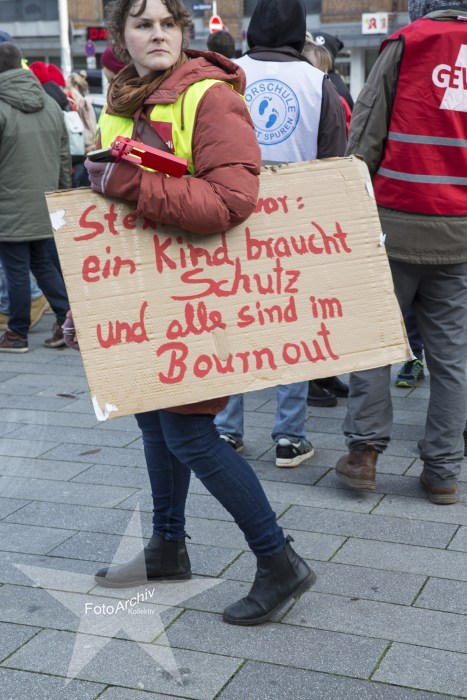 GEW
ORSCHULE
T SPUREN
vor:
ein Kind braucht
Schutz
und alle sind im
Bournout
FotoArchiv
Kollektiv